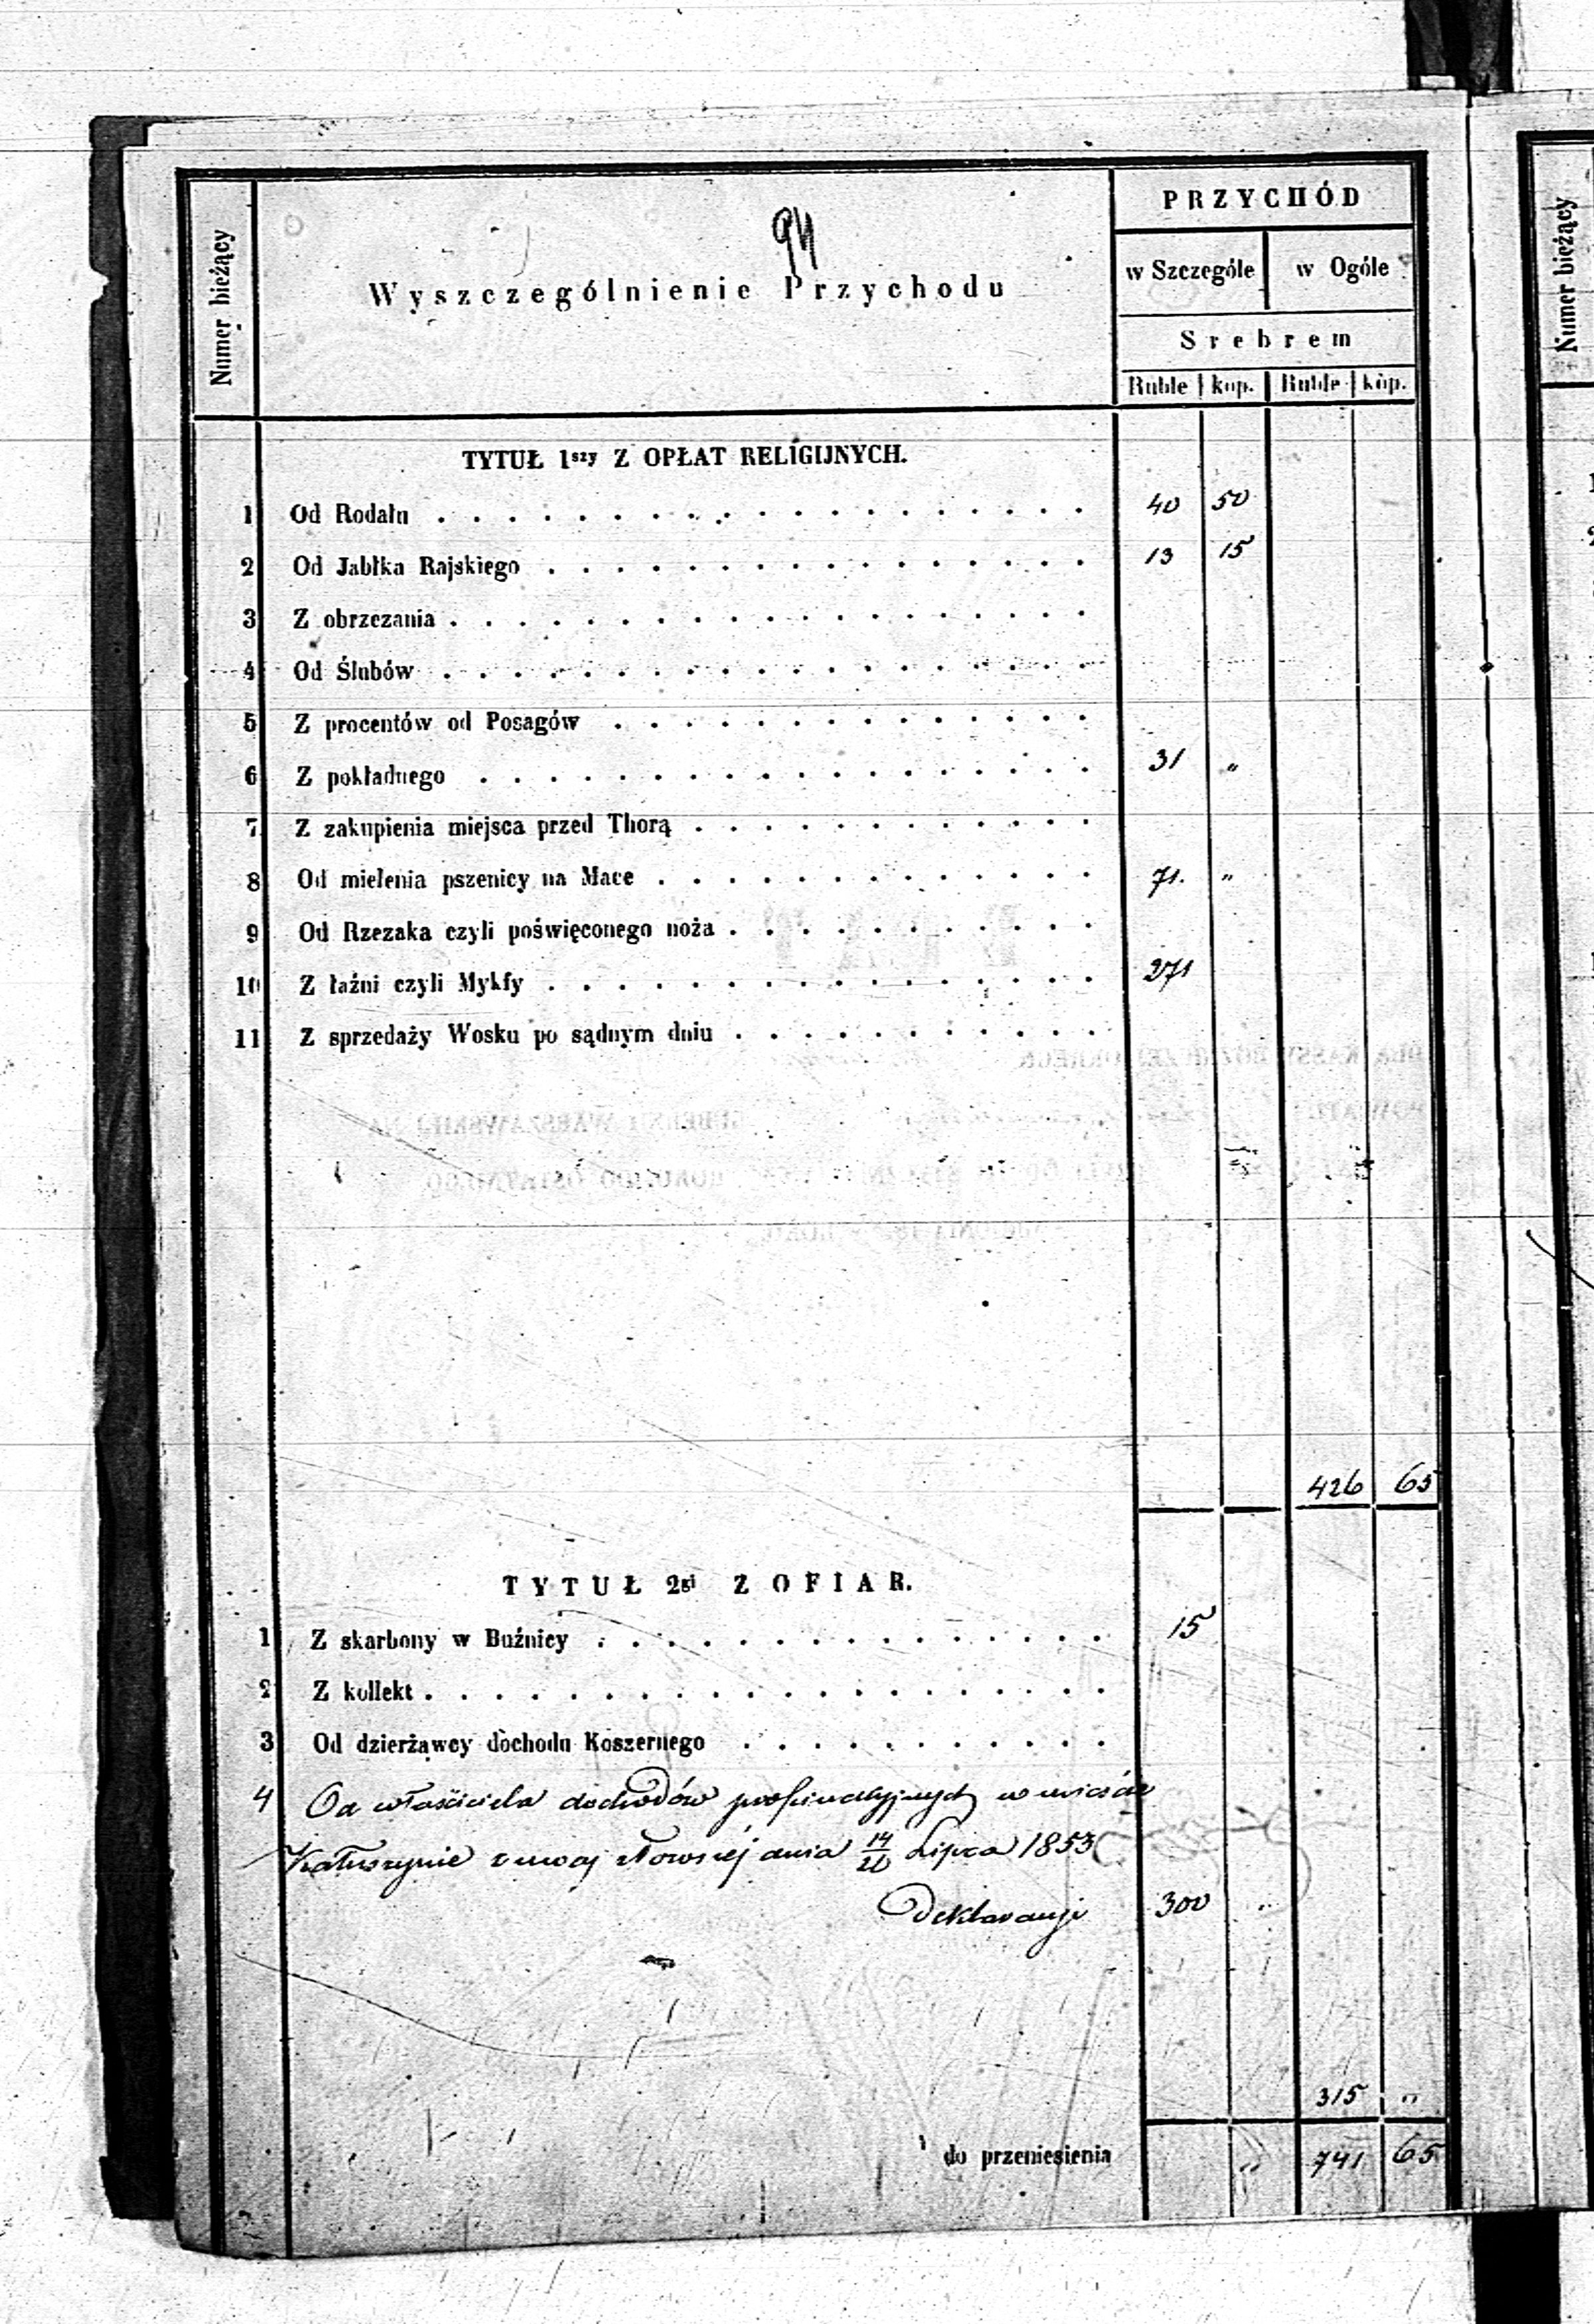 94
Numer bieżący
Wyszczególnienie Przychodu
PRZYCHÓD
w Szczególe w Ogóle
Srebrem
Ruble kop. Ruble kop.
TYTUŁ 1szy Z OPŁAT RELIGIJNYCH.
1 Od Rodału 40 50
2 Od Jabłka Rajskiego 13 15
3 Z obrzezania
4 Od Ślubów
5 Z procentów od Posagów
6 Z pokładnego 31 "
7 Z zakupienia miejsca przed Thorą
8 Od mielenia pszenicy na Mace 71. "
9 Od Rzezaka czyli poświęconego noża
10 Z łaźni czyli Mykfy 271
11 Z sprzedaży Wosku po sądnym dniu
426 65
TYTUŁ 2gi Z OFIAR.
1 Z skarbony w Buźnicy 15
2 Z kollekt
3 Od dzierżawcy dochodu Koszernego
4 Od właściciela dochodów propinacyjnych w mieście
Kałuszynie z mocy dnia 14/26 Lipca 1853
Deklaracyi 300 "
315 "
do przeniesienia " 741 65
Numer bieżący